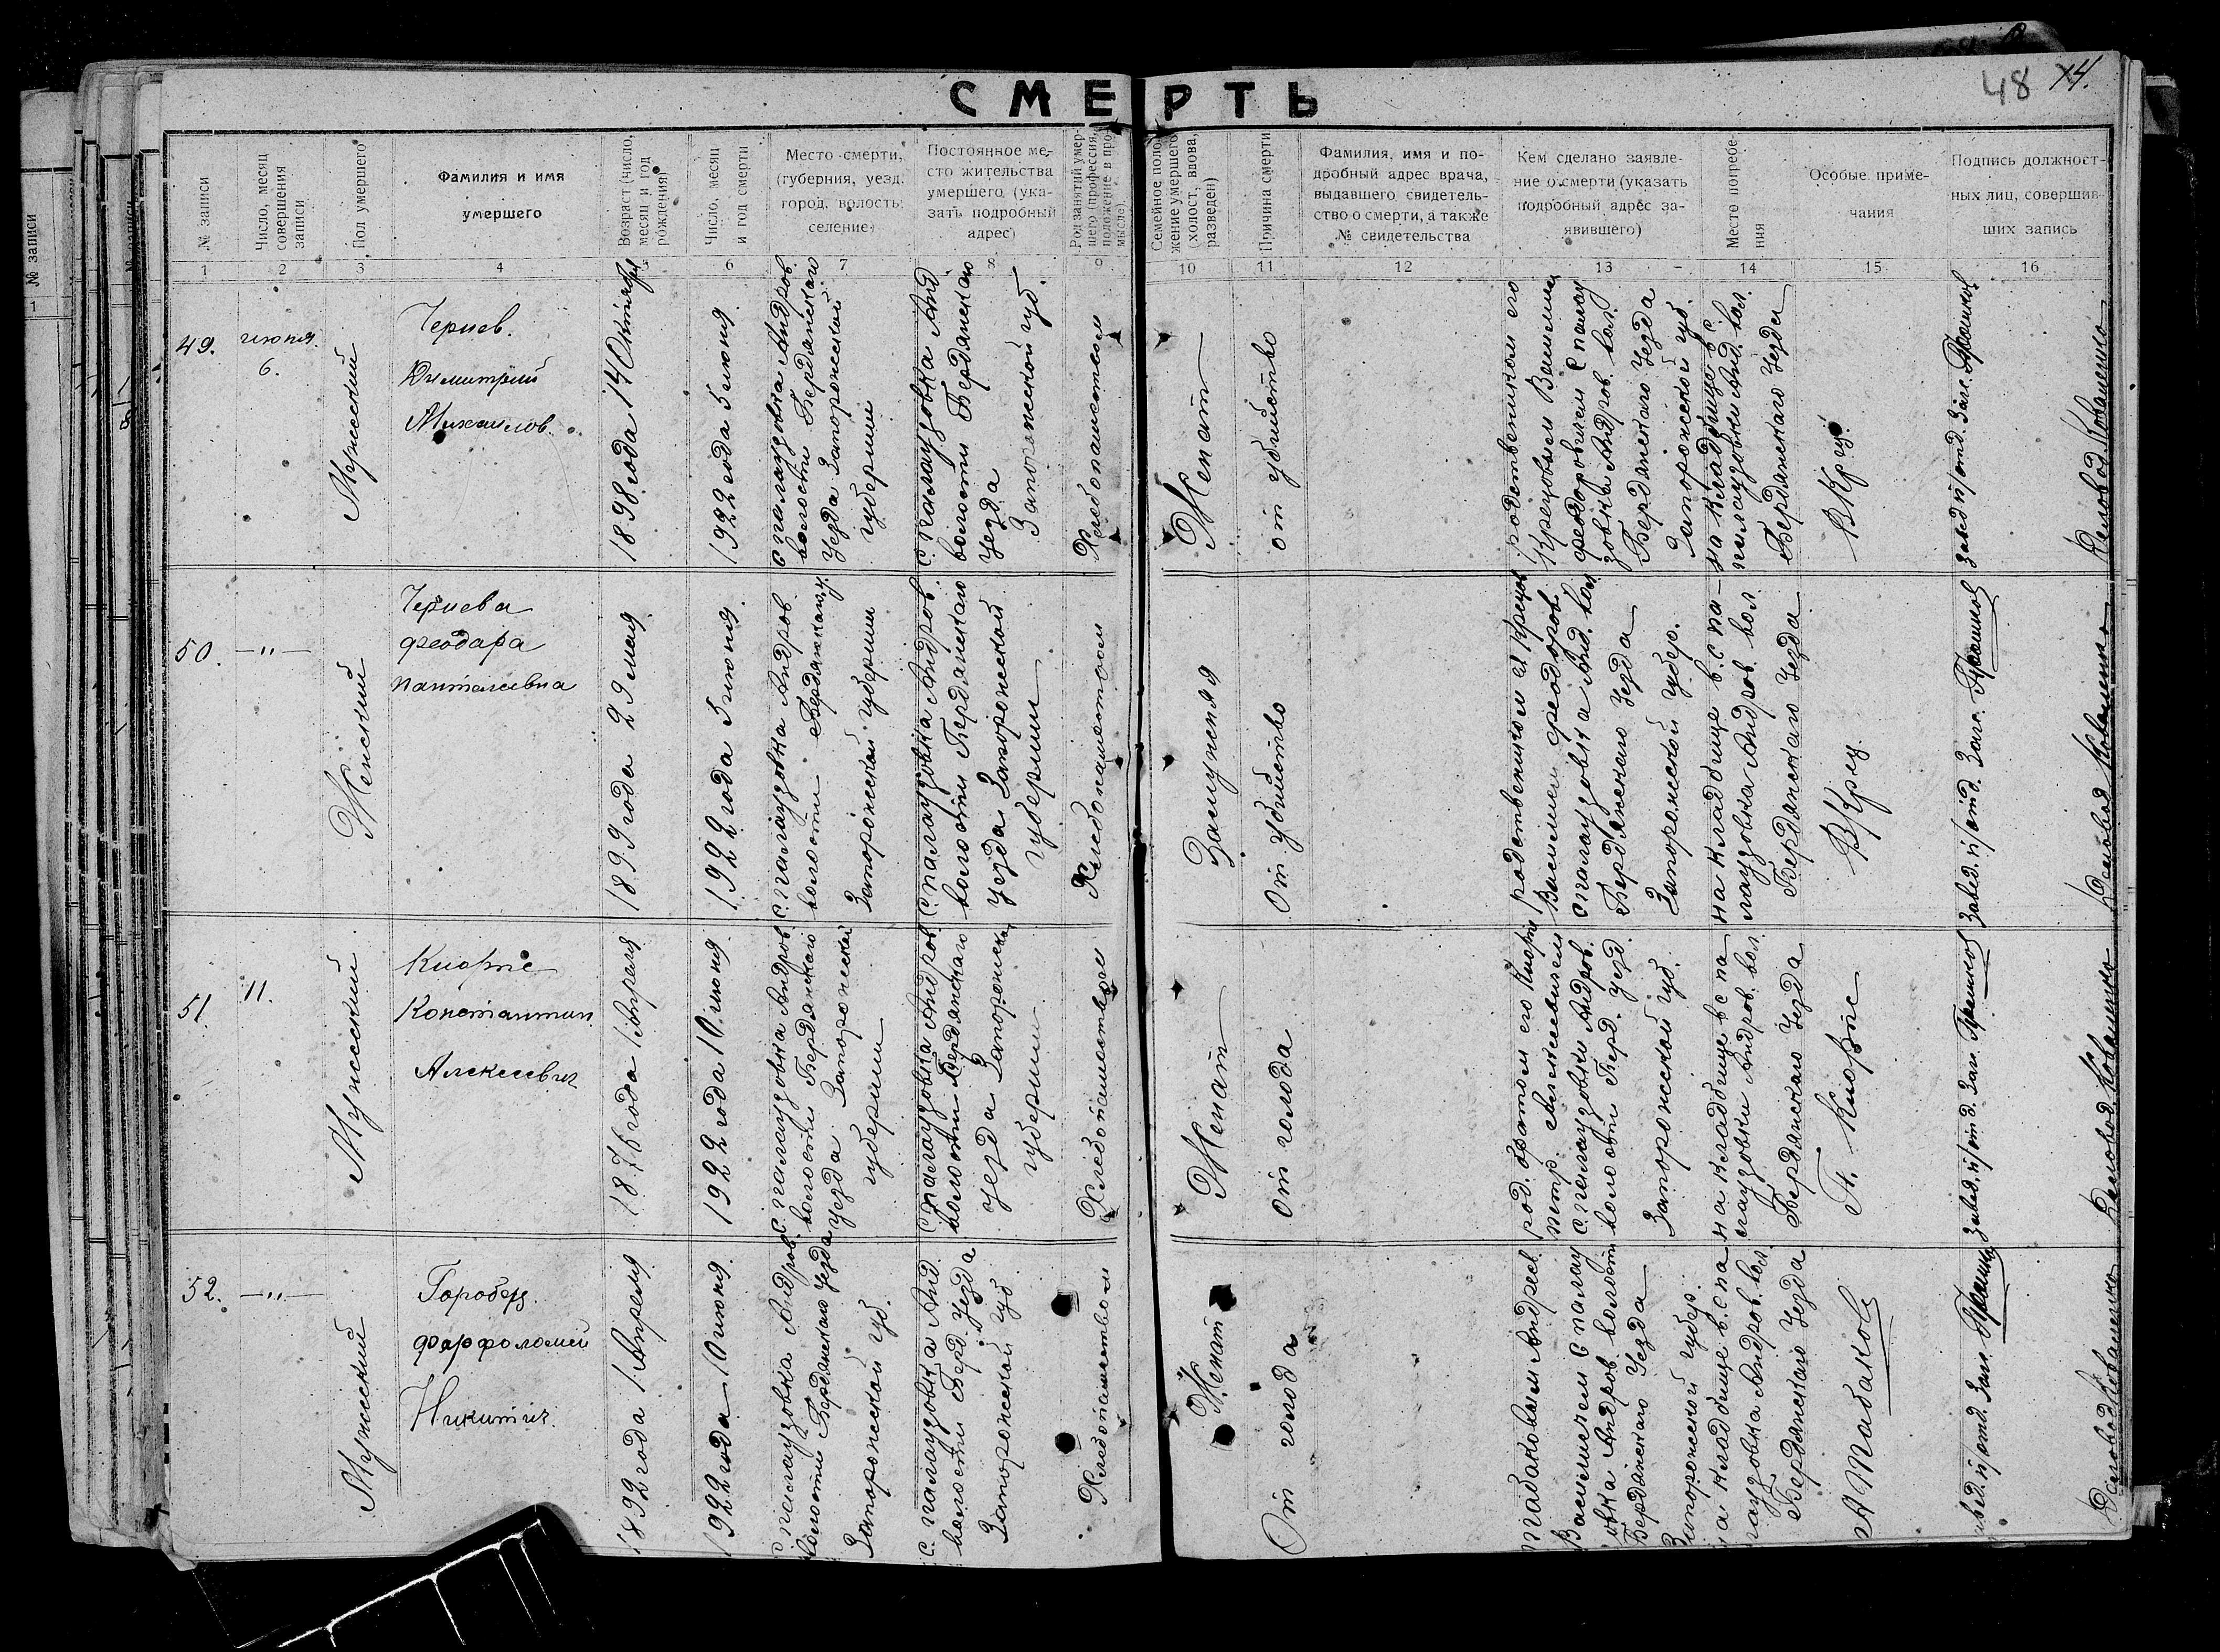 СМЕРТЬ
48 74.
№ записи
Число, месяц
совершения
записи
Пол умершего
Фамилия и имя
умершего
Возраст (число,
месяц и год
рождения)
Число, месяц
и год смерти
Место смерти,
(губерния, уезд,
город, волость,
селение)
Постоянное ме-
сто жительства
умершего (ука-
зать подробный
адрес)
Род занятий умер-
шего (профессия,
положение в про-
мысле)
Семейное поло-
жение умершего
(холост, вдова,
разведен)
Причина смерти
Фамилия, имя и по-
дробный адрес врача,
выдавшего свидетель-
ство о смерти, а также
№ свидетельства
Кем сделано заявле-
ние о смерти (указать
подробный адрес за-
явившего)
Место погребе-
ния
Особые приме-
чания
Подпись должност-
ных лиц, совершив-
ших запись
1 2 3 4 5 6 7 8 9 10 11 12 13 14 15 16
49.
июня
6.
Мужеский
Чернев.
Димитрий
Михаилов.
1898 года 14 Октября
1922 года 5 июня.
с палаузовка Андров.
волости Бердянскаго
Уезда Запорожской
губернии
с. палаузовка Анд
волости Бердянскаго
Уезда
Запорожской губ.
Хлебопашеством
Женат
от убийство
родственником его
Крецовым Василием
феодоровичем с палау
зовка Андров. вол.
Бердянскаго Уезда
Запорожской губ.
на кладбище в с.
палаузовки Анд. вол.
Бердянскаго Уезда
ВКрец.
завед п/отд. Загс.
Деловод Коваленко
50. —"—
Женский
Чернева
феодара
пантелевна
1899 года 29 мая.
1922 года 5 июня.
с. палаузовка Андров.
волости Бердянскаго у.
Запорожской губернии
с. палаузовка Андров.
волости Бердянскаго
Уезда Запорожской
губернии
Хлебопашеством
Замужняя
От убийство
родственником Крецов
Василем феодоров.
с палаузовка Анд. вол
Бердянскаго Уезда
Запорожской губер.
на кладбище в с. па-
лаузовка Андров. вол
Бердянскаго Уезда
ВКрец.
завед. п/отд. Загс.
Деловод Коваленко
51.
11.
Мужеский
Киорпе
Константин
Алексеевич
1876 года 1 Апреля
1922 года 10 июня
с. палаузовка Андров
волости Бердянскаго
уезда Запорожской
губернии
с палаузовка Андров.
волости Бердянскаго
Уезда Запорожской
губернии
Хлебопашеством
Женат
от голода
род. братом его Киорпе
петр Алексеевичем
с палаузовки Андров.
волости Берд. Уезд.
Запорожской губ.
на кладбище в с па
лаузовки Андров. вол.
Бердянскаго Уезда
П. Киорпе
завед. п/отд. Заг.
Деловод Коваленко
52. —"—
Мужеский
Горобец.
Фарфоломей
Никитич.
1892 года 1 Апреля.
1922 года 10 июня.
с палаузовка Андров.
волости Бердянскаго Уезда
Запорожской губ.
с. палаузовка Анд.
волости Берд. Уезда
Запорожской губ
Хлебопашеством
Женат
От голода
табаковым Андреем
Васильичем с палау
зовка Андров волости
Бердянскаго Уезда
Запорожской губер.
на кладбище в. с па
лаузовка Андров. вол
Бердянскаго Уезда
А Табаковъ
завед. п/отд. Загс.
Деловод Коваленко
№ записи
1